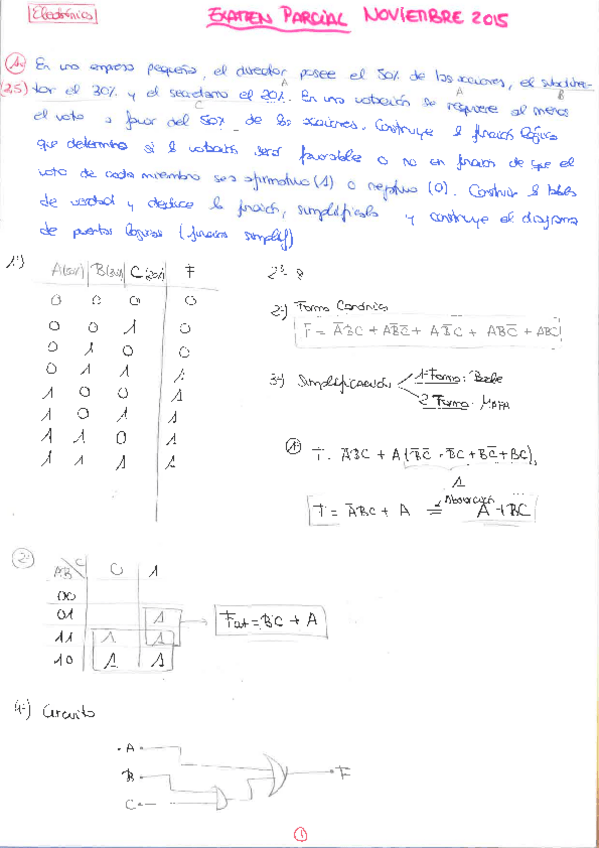 Electrónica
EXAMEN PARCIAL NOVIEMBRE 2015
1. En una empresa pequeña, el director posee el 50% de las acciones, el subdirec-
A B
(2,5) tor el 30% y el secretario el 20%. En una votación se requiere al menos
C
el voto a favor del 50% de las acciones. Construye la función lógica
que determine si la votación será favorable o no en función de que el
voto de cada miembro sea afirmativo (1) o negativo (0). Construir la tabla
de verdad y deduce la función, simplifícala y construye el diagrama
de puertas lógicas (función simplif)
1º)
A(50%) B(30%) C(20%) F
0 0 0 0
0 0 1 0
0 1 0 0
0 1 1 1
1 0 0 1
1 0 1 1
1 1 0 1
1 1 1 1
2³ = 8
2º) Forma Canónica
F = A̅BC + AB̅C̅ + AB̅C + ABC̅ + ABC
3º) Simplificación
1ª Forma: Boole
2ª Forma: MAPA
1º F = A̅BC + A(B̅C̅ + B̅C + BC̅ + BC)
1
F = A̅BC + A = A + BC
Absorción
2º
AB C 0 1
00
01 1
11 1 1
10 1 1
= BC + A
4º) Circuito
A
B
C
F
1